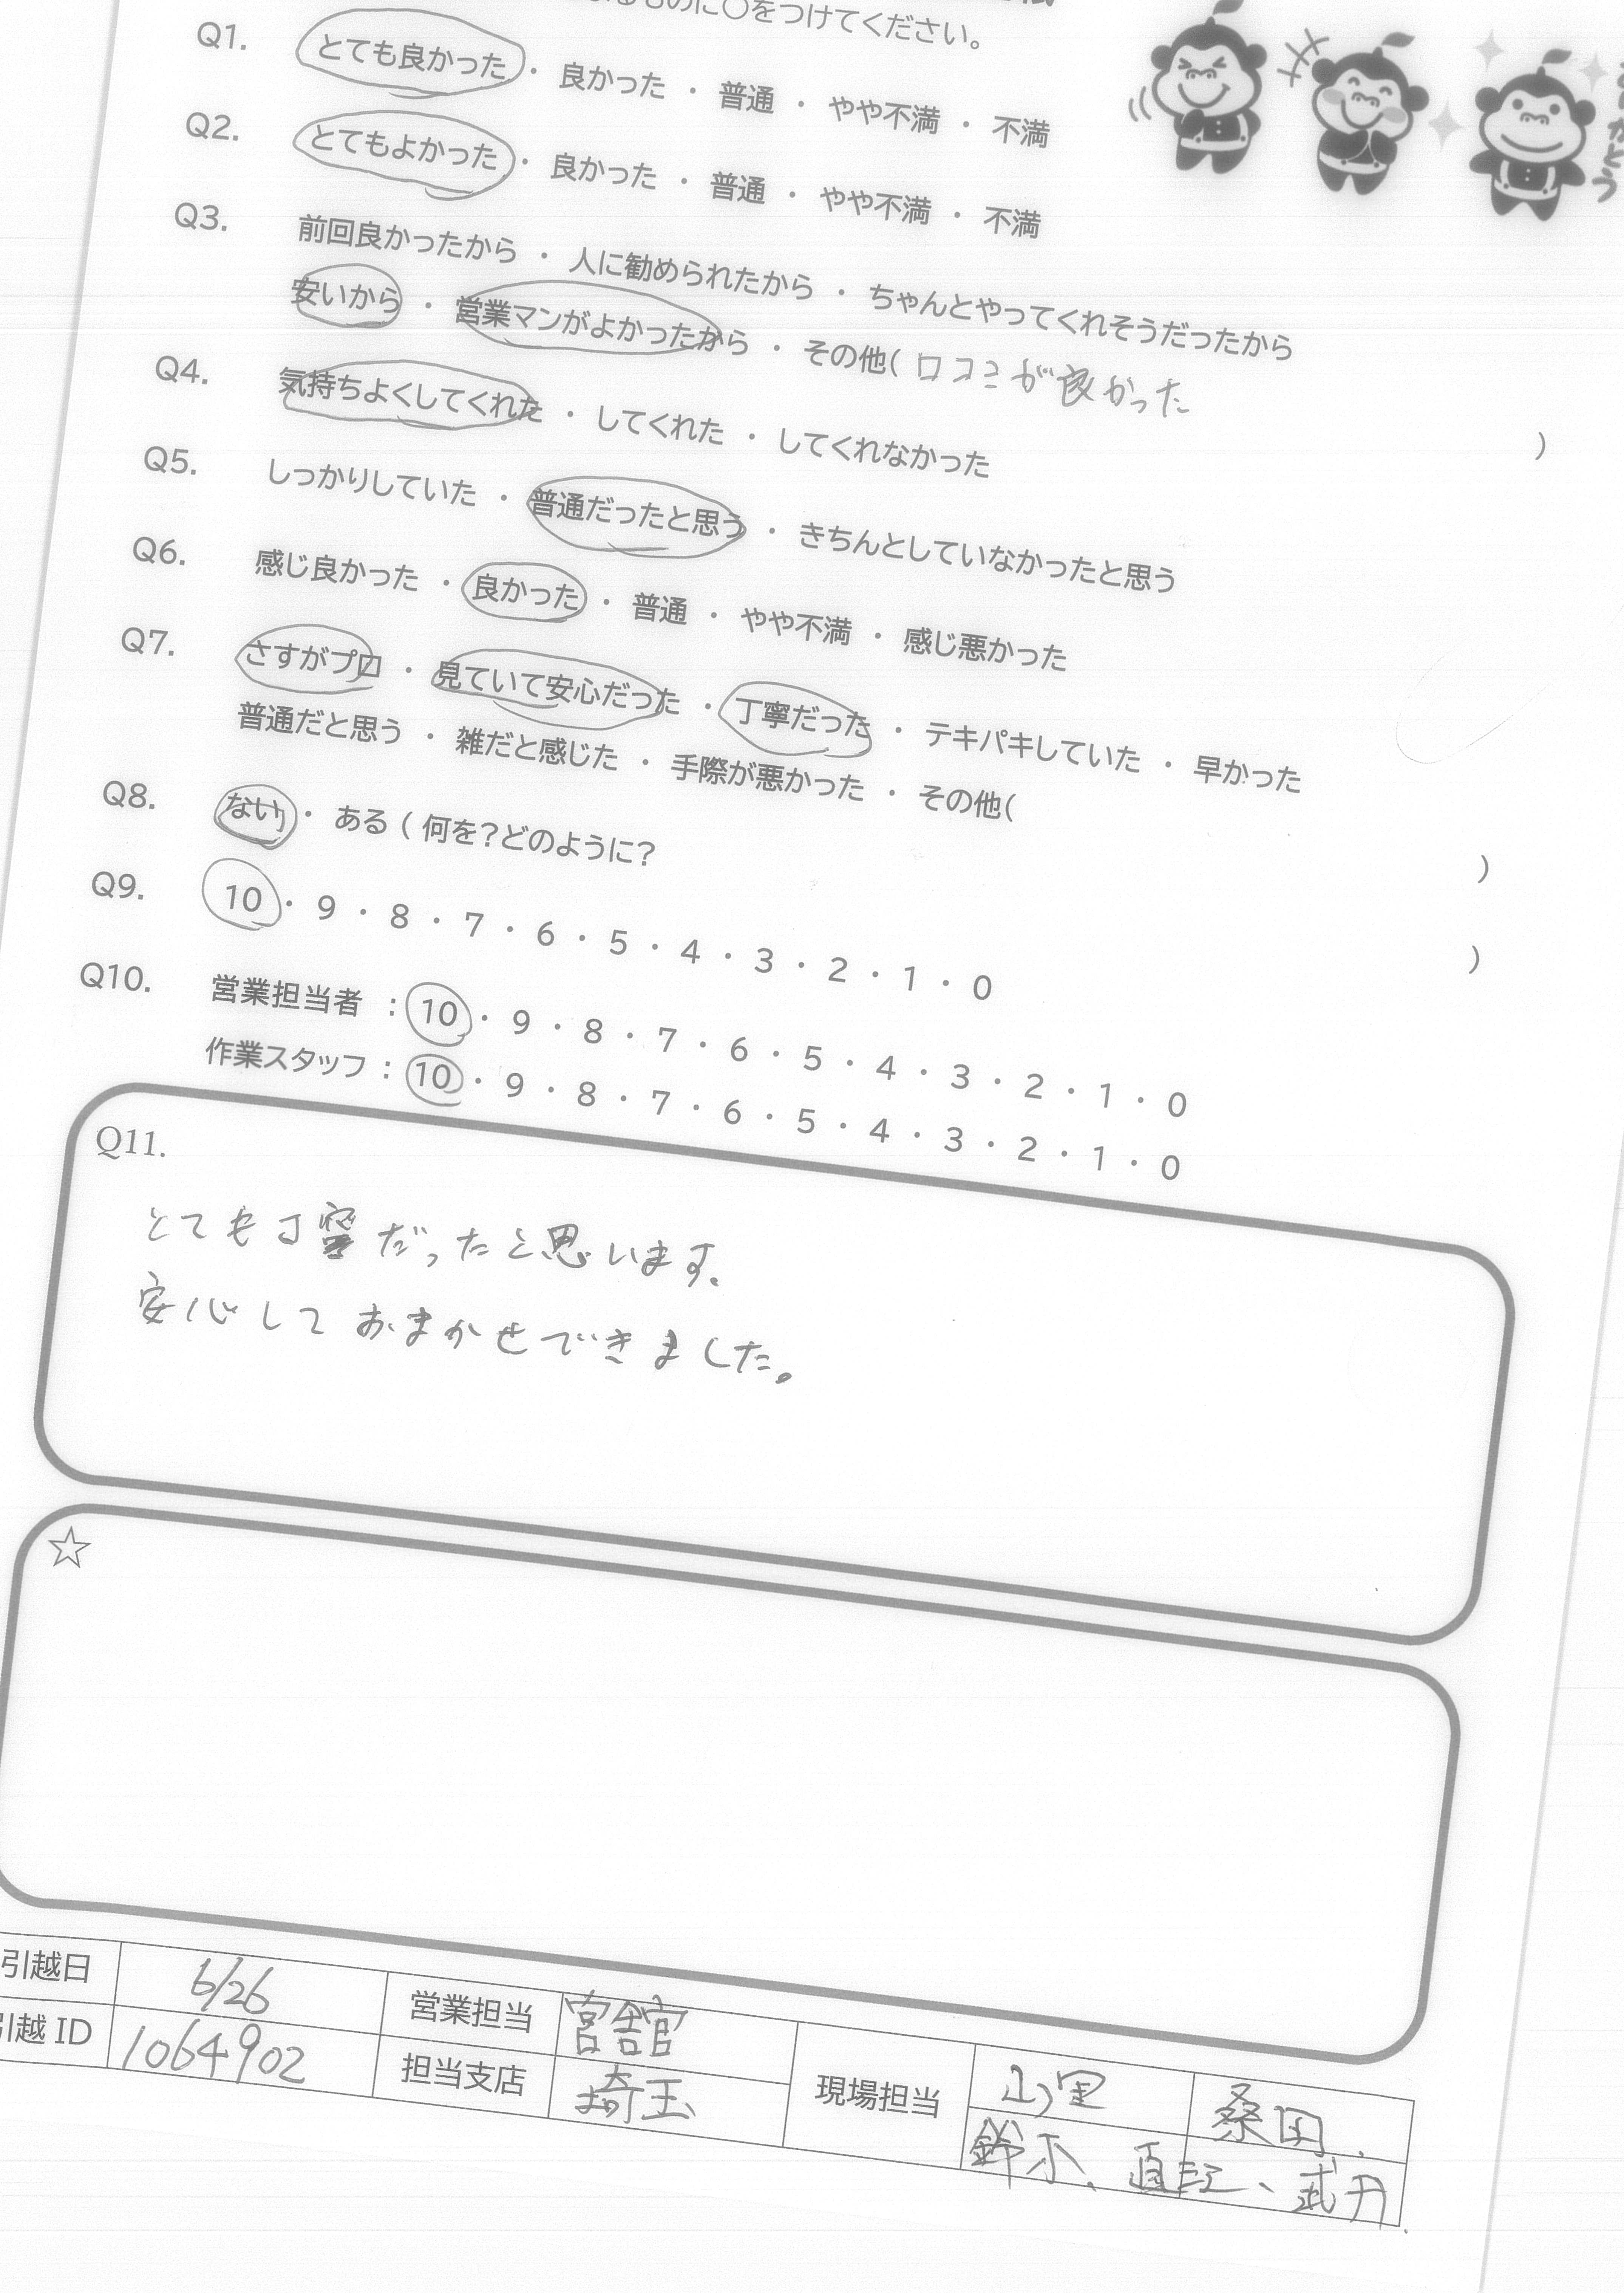 るものに○をつけてください。
Q1. とても良かった ・ 良かった ・ 普通 ・ やや不満 ・ 不満
Q2. とてもよかった ・ 良かった ・ 普通 ・ やや不満 ・ 不満
Q3. 前回良かったから ・ 人に勧められたから ・ ちゃんとやってくれそうだったから
安いから ・ 営業マンがよかったから ・ その他( 口コミが良かった )
Q4. 気持ちよくしてくれた ・ してくれた ・ してくれなかった
Q5. しっかりしていた ・ 普通だったと思う ・ きちんとしていなかったと思う
Q6. 感じ良かった ・ 良かった ・ 普通 ・ やや不満 ・ 感じ悪かった
Q7. さすがプロ ・ 見ていて安心だった ・ 丁寧だった ・ テキパキしていた ・ 早かった
普通だと思う ・ 雑だと感じた ・ 手際が悪かった ・ その他( )
Q8. ない ・ ある ( 何を?どのように? )
Q9. 10 ・ 9 ・ 8 ・ 7 ・ 6 ・ 5 ・ 4 ・ 3 ・ 2 ・ 1 ・ 0
Q10. 営業担当者 : 10 ・ 9 ・ 8 ・ 7 ・ 6 ・ 5 ・ 4 ・ 3 ・ 2 ・ 1 ・ 0
作業スタッフ : 10 ・ 9 ・ 8 ・ 7 ・ 6 ・ 5 ・ 4 ・ 3 ・ 2 ・ 1 ・ 0
Q11.
とても丁寧だったと思います。
安心しておまかせできました。
☆
引越日 6/26 営業担当 宮舘
引越 ID 1064902 担当支店 埼玉
現場担当 山里 桑田.
鈴木、直江、武丹